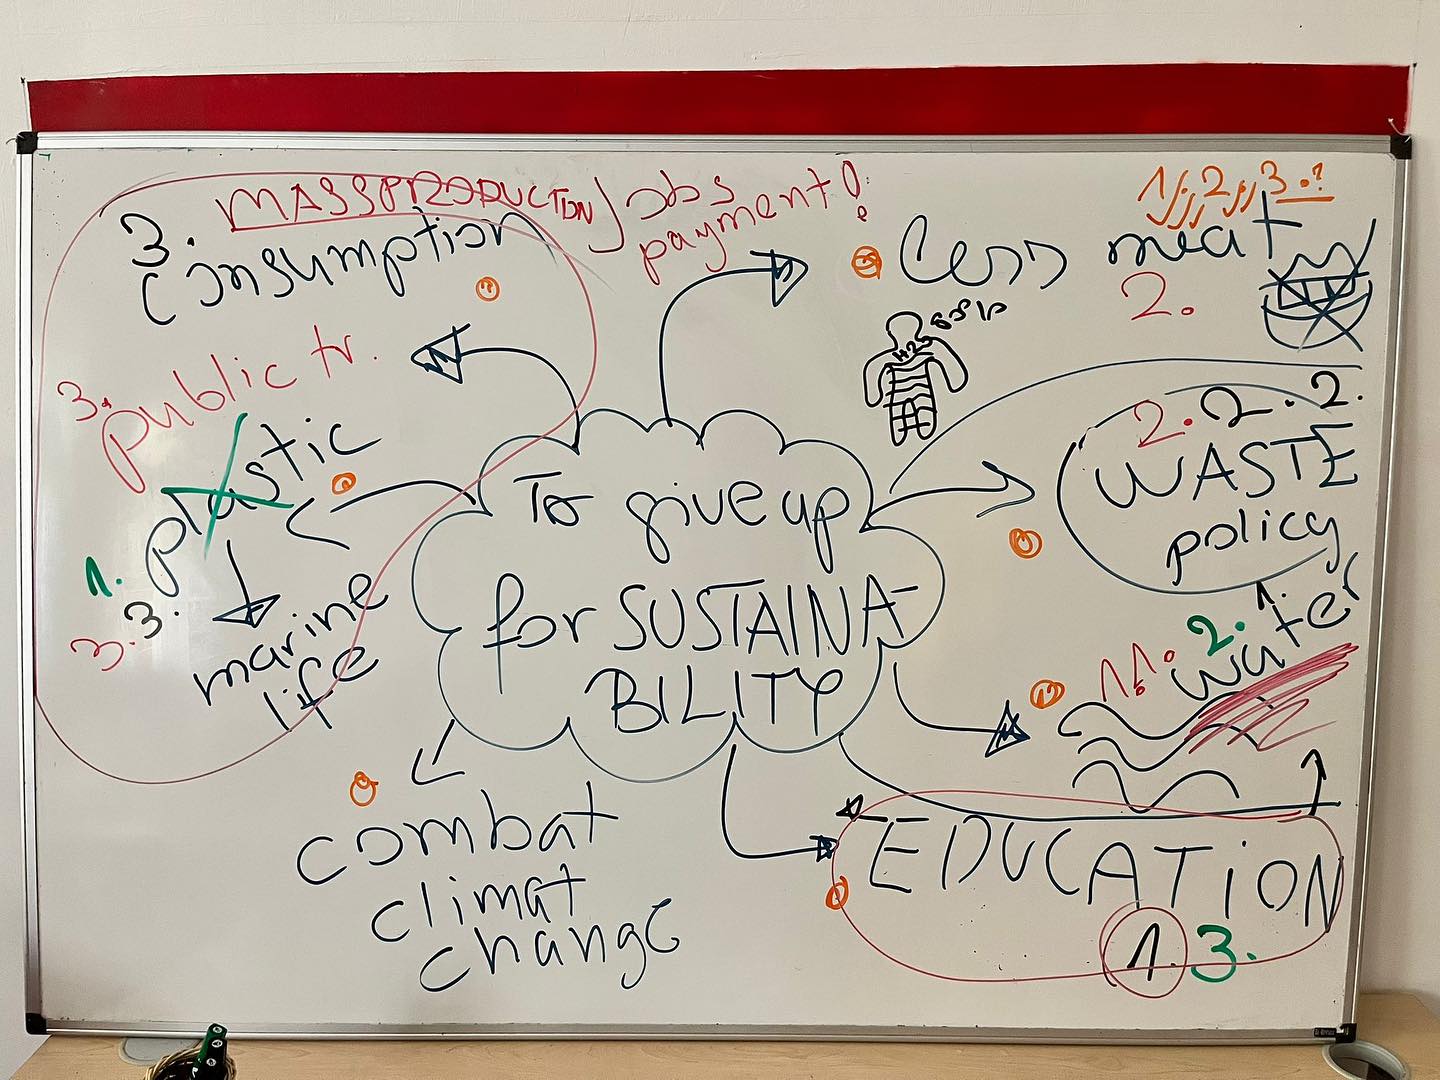 MASSPRODUCTION
Jobs
payment!
1, 2, 3.?
3.
Consumption
less meat
2.
public tr.
3.
plastic
1.
3.
3.
marine
life
To give up
for SUSTAINA-
BILITY
2. 2. 2.
WASTE
policy
1.
2.
11.
water
combat
climat
change
EDUCATION
1. 3.